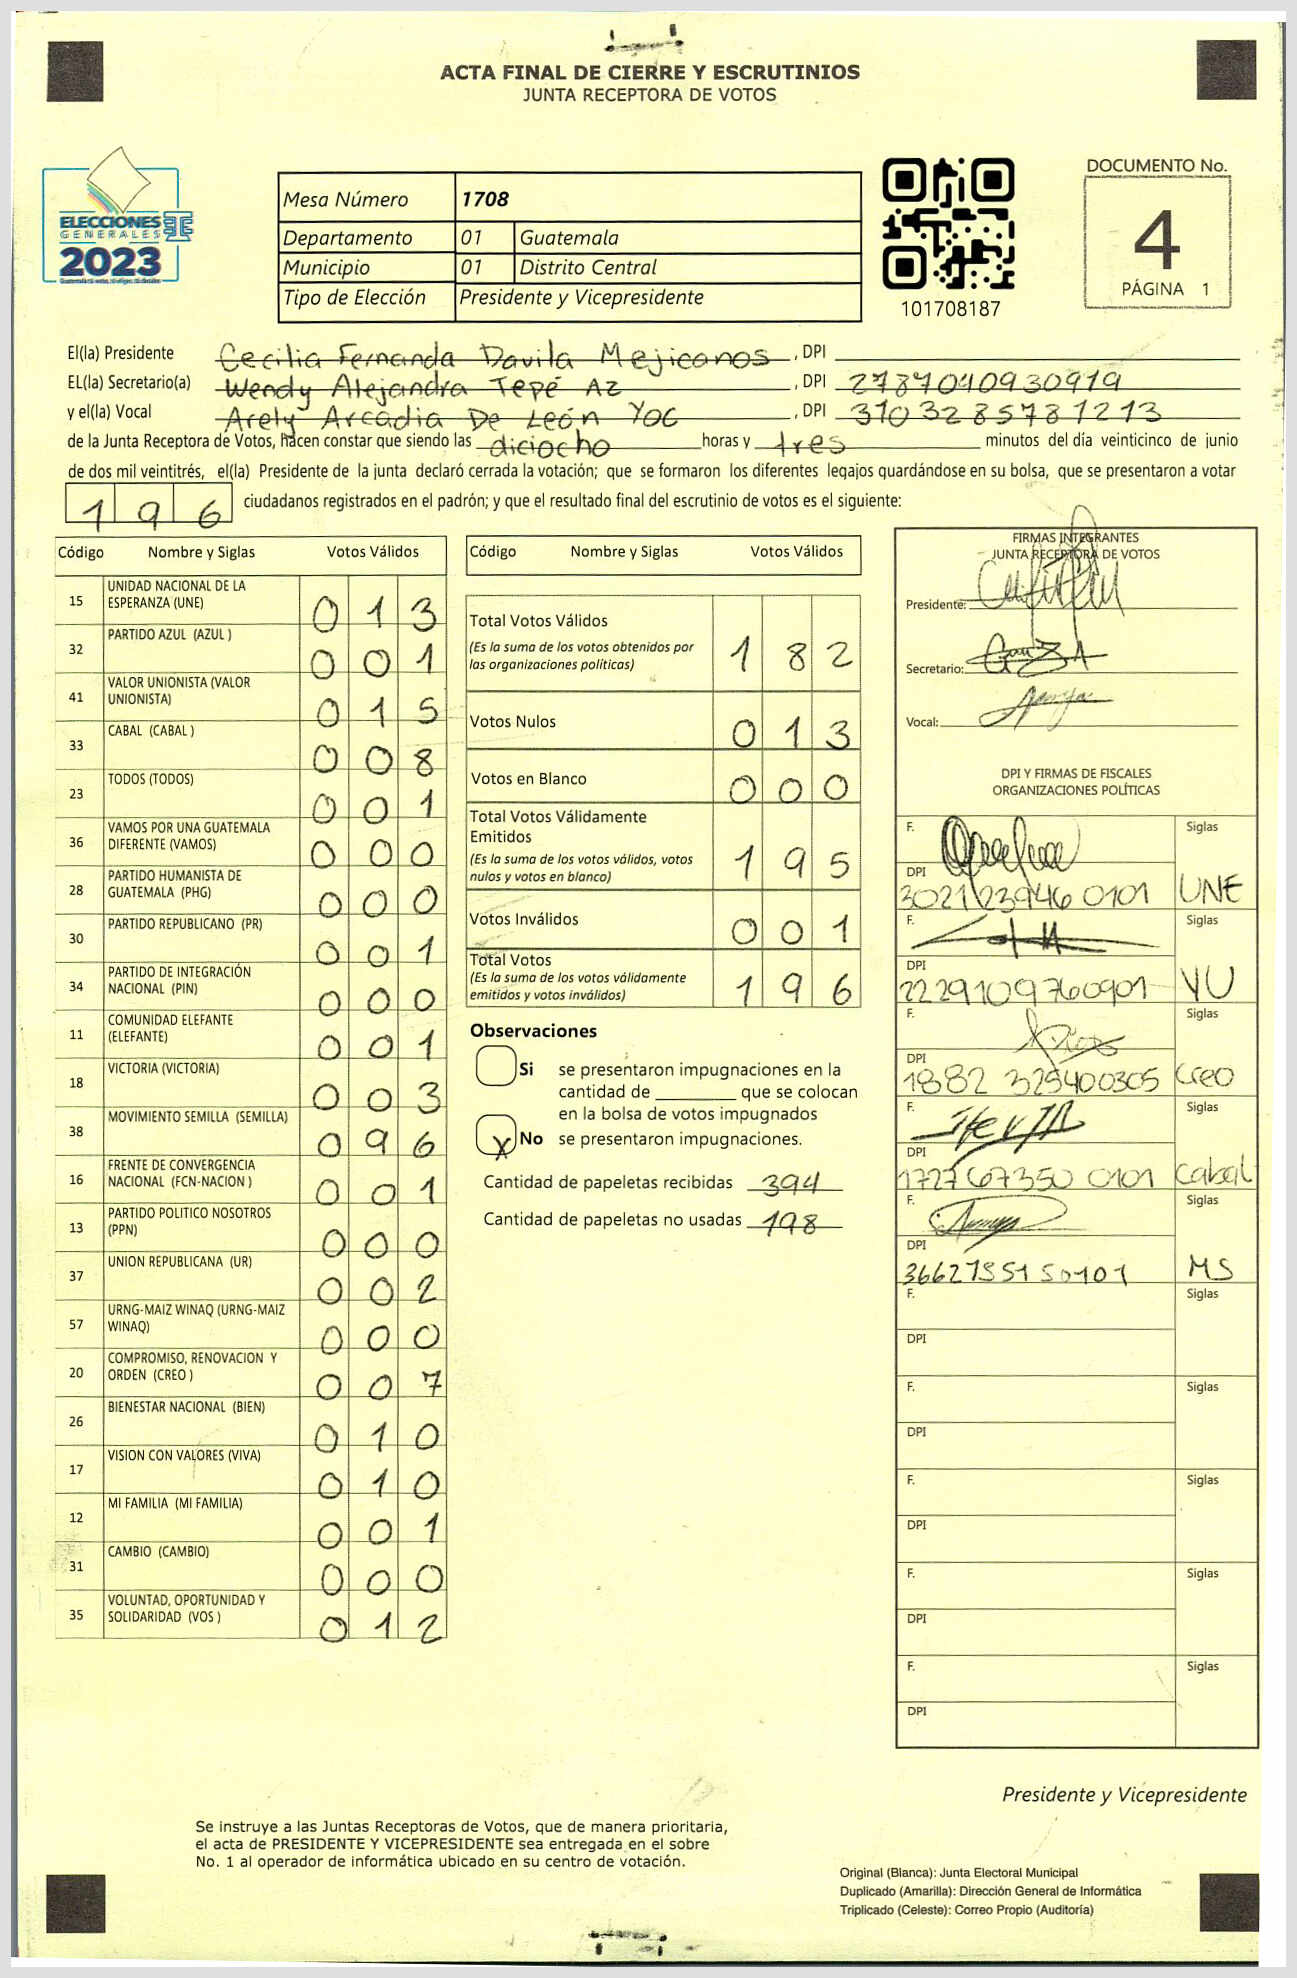 ACTA FINAL DE CIERRE Y ESCRUTINIOS
JUNTA RECEPTORA DE VOTOS
ELECCIONES
GENERALES
2023
Mesa Número 1708
Departamento 01 Guatemala
Municipio 01 Distrito Central
Tipo de Elección Presidente y Vicepresidente
101708187
DOCUMENTO No.
4
PÁGINA 1
El(la) Presidente Cecilia Fernanda Davila Mejicanos , DPI
EL(la) Secretario(a) Wendy Alejandra Tepé Az , DPI 2787040930919
y el(la) Vocal Arely Arcadia De León Yoc , DPI 3103285781213
de la Junta Receptora de Votos, hacen constar que siendo las diciocho horas y tres minutos del día veinticinco de junio
de dos mil veintitrés, el(la) Presidente de la junta declaró cerrada la votación; que se formaron los diferentes legajos quardándose en su bolsa, que se presentaron a votar
196 ciudadanos registrados en el padrón; y que el resultado final del escrutinio de votos es el siguiente:
Código Nombre y Siglas Votos Válidos
15 UNIDAD NACIONAL DE LA ESPERANZA (UNE) 013
32 PARTIDO AZUL (AZUL ) 001
41 VALOR UNIONISTA (VALOR UNIONISTA) 015
33 CABAL (CABAL ) 008
23 TODOS (TODOS) 001
36 VAMOS POR UNA GUATEMALA DIFERENTE (VAMOS) 000
28 PARTIDO HUMANISTA DE GUATEMALA (PHG) 000
30 PARTIDO REPUBLICANO (PR) 001
34 PARTIDO DE INTEGRACIÓN NACIONAL (PIN) 000
11 COMUNIDAD ELEFANTE (ELEFANTE) 001
18 VICTORIA (VICTORIA) 003
38 MOVIMIENTO SEMILLA (SEMILLA) 096
16 FRENTE DE CONVERGENCIA NACIONAL (FCN-NACION ) 001
13 PARTIDO POLITICO NOSOTROS (PPN) 000
37 UNION REPUBLICANA (UR) 002
57 URNG-MAIZ WINAQ (URNG-MAIZ WINAQ) 000
20 COMPROMISO, RENOVACION Y ORDEN (CREO ) 007
26 BIENESTAR NACIONAL (BIEN) 010
17 VISION CON VALORES (VIVA) 010
12 MI FAMILIA (MI FAMILIA) 001
31 CAMBIO (CAMBIO) 000
35 VOLUNTAD, OPORTUNIDAD Y SOLIDARIDAD (VOS ) 012
Código Nombre y Siglas Votos Válidos
Total Votos Válidos 182
(Es la suma de los votos obtenidos por
las organizaciones políticas)
Votos Nulos 013
Votos en Blanco 000
Total Votos Válidamente
Emitidos 195
(Es la suma de los votos válidos, votos
nulos y votos en blanco)
Votos Inválidos 001
Total Votos 196
(Es la suma de los votos válidamente
emitidos y votos inválidos)
Observaciones
Si se presentaron impugnaciones en la
cantidad de ________ que se colocan
en la bolsa de votos impugnados
X No se presentaron impugnaciones.
Cantidad de papeletas recibidas 394
Cantidad de papeletas no usadas 198
FIRMAS INTEGRANTES
JUNTA RECEPTORA DE VOTOS
Presidente:
Secretario:
Vocal:
DPI Y FIRMAS DE FISCALES
ORGANIZACIONES POLÍTICAS
F. Siglas
DPI 3021239460101 UNE
F. Siglas
DPI 2229109760901 VU
F. Siglas
DPI 1882 325400305 Creo
F. Siglas
DPI 1727673500101 Cabal
F. Siglas
DPI 3662735150101 MS
F. Siglas
DPI
F. Siglas
DPI
F. Siglas
DPI
F. Siglas
DPI
F. Siglas
DPI
Presidente y Vicepresidente
Se instruye a las Juntas Receptoras de Votos, que de manera prioritaria,
el acta de PRESIDENTE Y VICEPRESIDENTE sea entregada en el sobre
No. 1 al operador de informática ubicado en su centro de votación.
Original (Blanca): Junta Electoral Municipal
Duplicado (Amarilla): Dirección General de Informática
Triplicado (Celeste): Correo Propio (Auditoría)